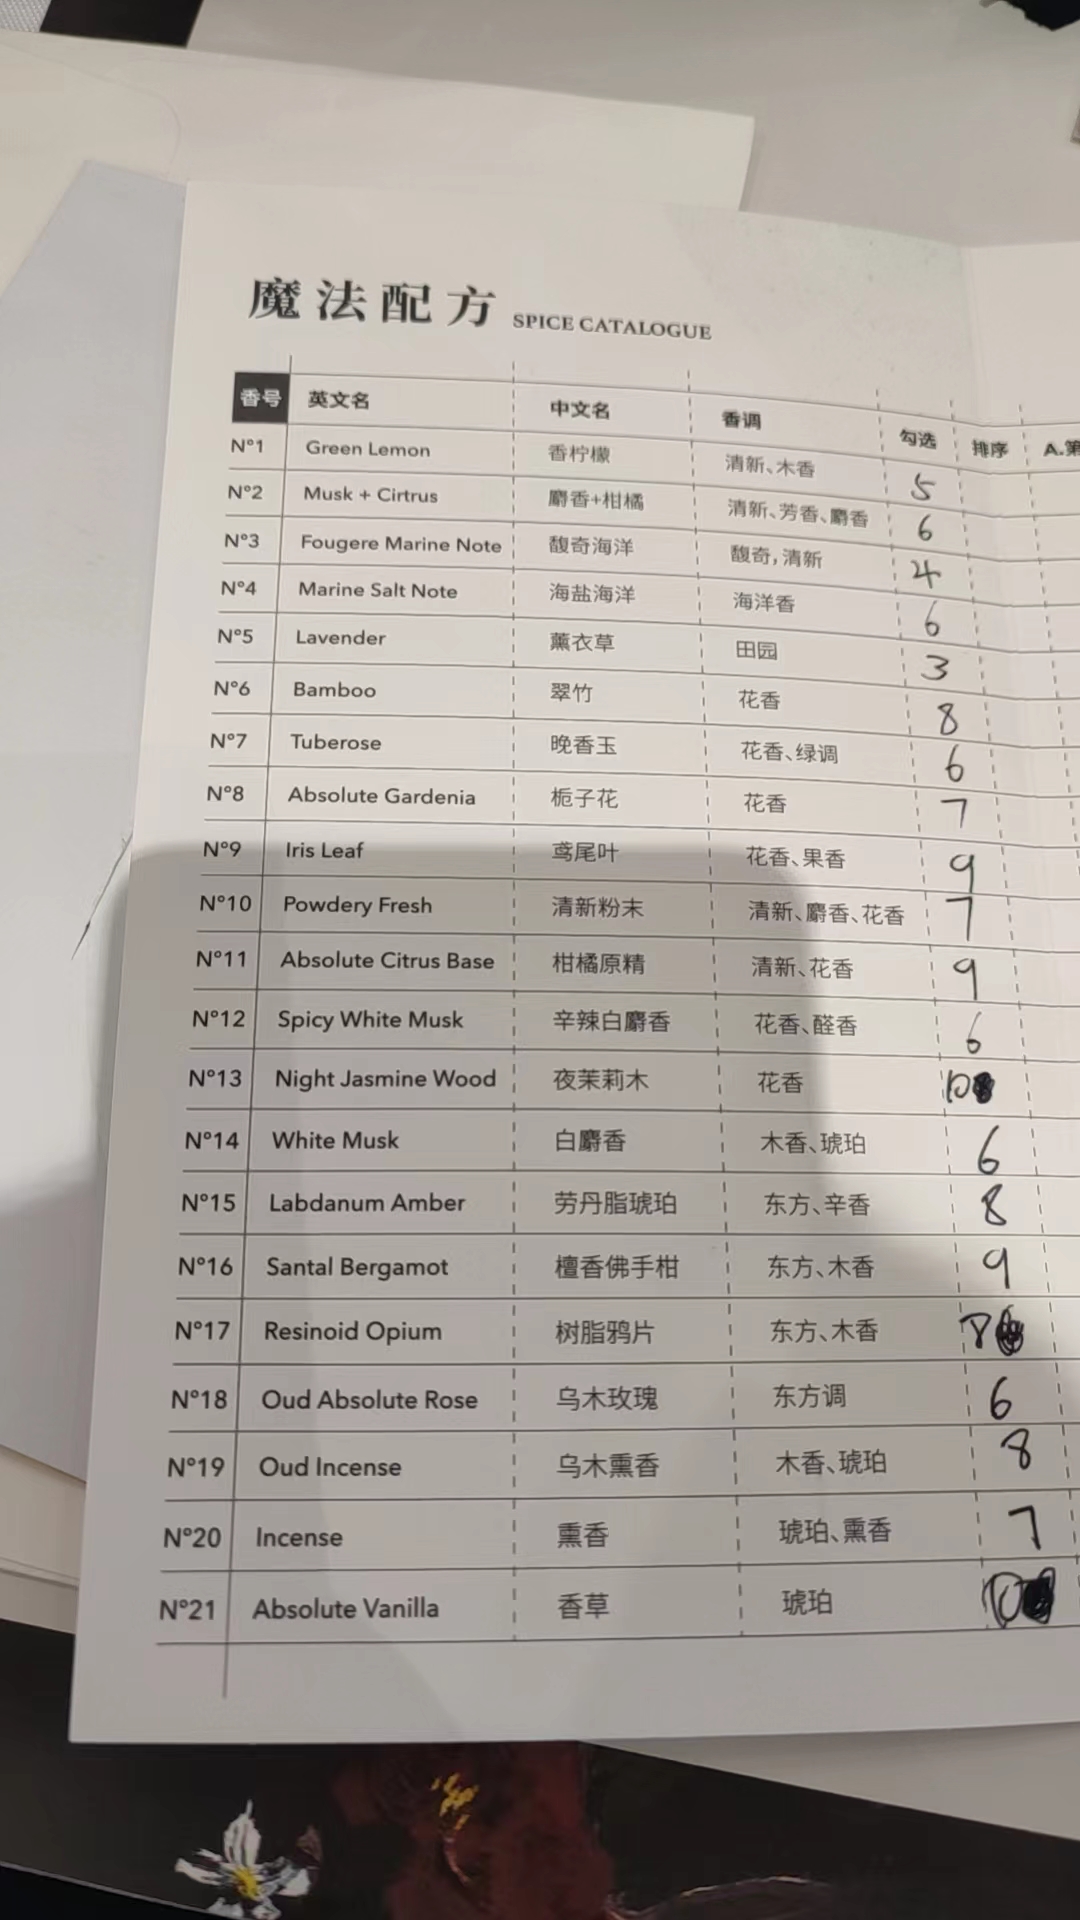 魔法配方 SPICE CATALOGUE
香号 英文名 中文名 香调 勾选 排序 A.第
N°1 Green Lemon 香柠檬 清新、木香 5
N°2 Musk + Cirtrus 麝香+柑橘 清新、芳香、麝香 6
N°3 Fougere Marine Note 馥奇海洋 馥奇,清新 4
N°4 Marine Salt Note 海盐海洋 海洋香 6
N°5 Lavender 薰衣草 田园 3
N°6 Bamboo 翠竹 花香 8
N°7 Tuberose 晚香玉 花香、绿调 6
N°8 Absolute Gardenia 栀子花 花香 7
N°9 Iris Leaf 鸢尾叶 花香、果香 9
N°10 Powdery Fresh 清新粉末 清新、麝香、花香 7
N°11 Absolute Citrus Base 柑橘原精 清新、花香 9
N°12 Spicy White Musk 辛辣白麝香 花香、醛香 6
N°13 Night Jasmine Wood 夜茉莉木 花香 10
N°14 White Musk 白麝香 木香、琥珀 6
N°15 Labdanum Amber 劳丹脂琥珀 东方、辛香 8
N°16 Santal Bergamot 檀香佛手柑 东方、木香 9
N°17 Resinoid Opium 树脂鸦片 东方、木香
N°18 Oud Absolute Rose 乌木玫瑰 东方调 6
N°19 Oud Incense 乌木熏香 木香、琥珀 8
N°20 Incense 熏香 琥珀、熏香 7
N°21 Absolute Vanilla 香草 琥珀 10